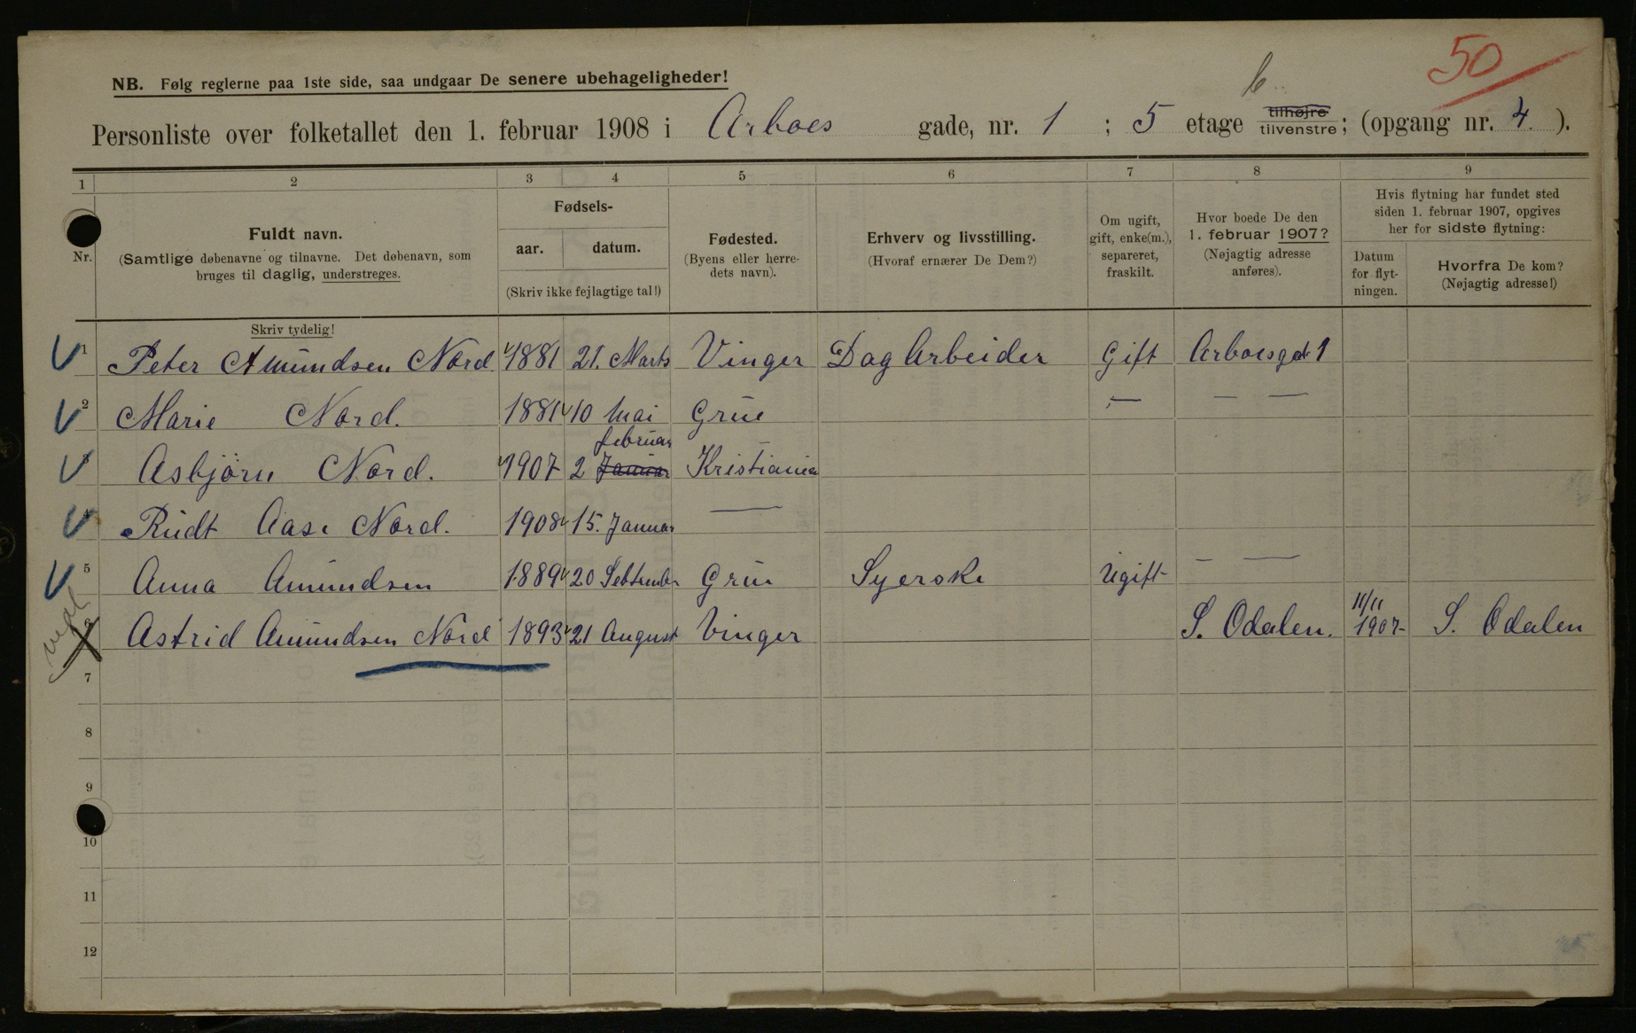 50
NB. Følg reglerne paa 1ste side, saa undgaar De senere ubehageligheder!
Personliste over folketallet den 1. februar 1908 i Arboes gade, nr. 1 ; 5 etage tilhøjre tilvenstre; (opgang nr. 4. ).
1 2 3 4 5 6 7 8 9
Nr.
Fuldt navn.
(Samtlige døbenavne og tilnavne. Det døbenavn, som
bruges til daglig, understreges.
Fødsels-
aar. datum.
(Skriv ikke fejlagtige tal!)
Fødested.
(Byens eller herre-
dets navn).
Erhverv og livsstilling.
(Hvoraf ernærer De Dem?)
Om ugift,
gift, enke(m.),
separeret,
fraskilt.
Hvor boede De den
1. februar 1907?
(Nøjagtig adresse
anføres).
Hvis flytning har fundet sted
siden 1. februar 1907, opgives
her for sidste flytning:
Datum
for flyt-
ningen.
Hvorfra De kom?
(Nøjagtig adresse!)
Skriv tydelig!
1 Peter Amundsen Nord 1881 21. Marts Vinger Dag Arbeider Gift Arboesgd 1
2 Marie Nord. 1881 10 Mai Grue — — —
februar
Asbjörn Nord. 1907 2 Januar Kristiania
Rudt Aase Nord. 1908 15. Januar —
5 Anna Amundsen 1889 20 September Grue Syerske Ugift — —
Astrid Amundsen Nord 1893 21 August Vinger S. Odalen. 11/11 1907 S. Odalen
7
8
9
10
11
12